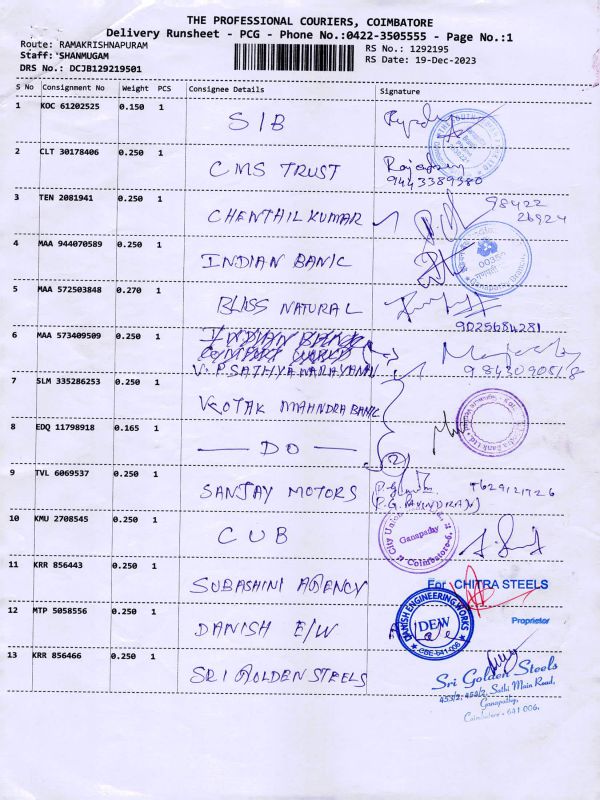 THE PROFESSIONAL COURIERS, COIMBATORE
Delivery Runsheet - PCG - Phone No.:0422-3505555 - Page No.:1
Route: RAMAKRISHNAPURAM
RS No.: 1292195
Staff: SHANMUGAM
RS Date: 19-Dec-2023
DRS No.: DCJB129219501
S No Consignment No Weight PCS Consignee Details Signature
1 KOC 61202525 0.150 1 SIB
2 CLT 30178406 0.250 1 CMS TRUST
9443389380
3 TEN 2081941 0.250 1 CHENTHIL KUMAR
98422
26924
4 MAA 944070589 0.250 1 INDIAN BANK
00350
5 MAA 572503848 0.270 1 BLISS NATURAL
9025684281
6 MAA 573409509 0.250 1 INDIAN BANK
V.P SATHYANARAYANAN
9843090518
7 SLM 335286253 0.250 1 KOTAK MAHINDRA BANK
8 EDQ 11798918 0.165 1 DO
(2)
9 TVL 6069537 0.250 1 SANJAY MOTORS
(P.G. RAVINDRAN)
10 KMU 2708545 0.250 1 CUB
City Union
Ganapathy
Coimbatore-6.
11 KRR 856443 0.250 1 SUBASHINI AGENCY
For CHITRA STEELS
Proprietor
12 MTP 5058556 0.250 1 DANISH E/W
DANISH ENGINEERING WORKS
DEW
CBE-641 006
13 KRR 856466 0.250 1 SRI GOLDEN STEELS
Sri Golden Steels
453/2, 454/2, Sathi Main Road,
Ganapathy,
Coimbatore - 641 006.